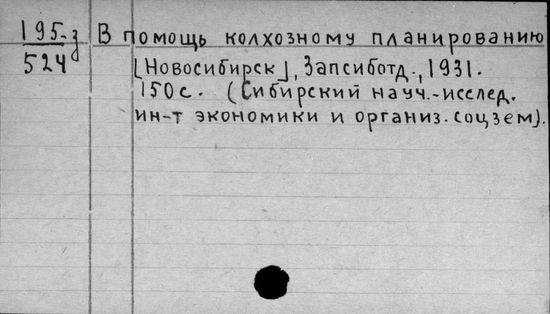 195-з В помощь колхозному планированию
524 [Новосибирск], Запсиботд., 1931.
150с. (Сибирский науч.-исслед.
ин-т экономики и организ. соцзем).